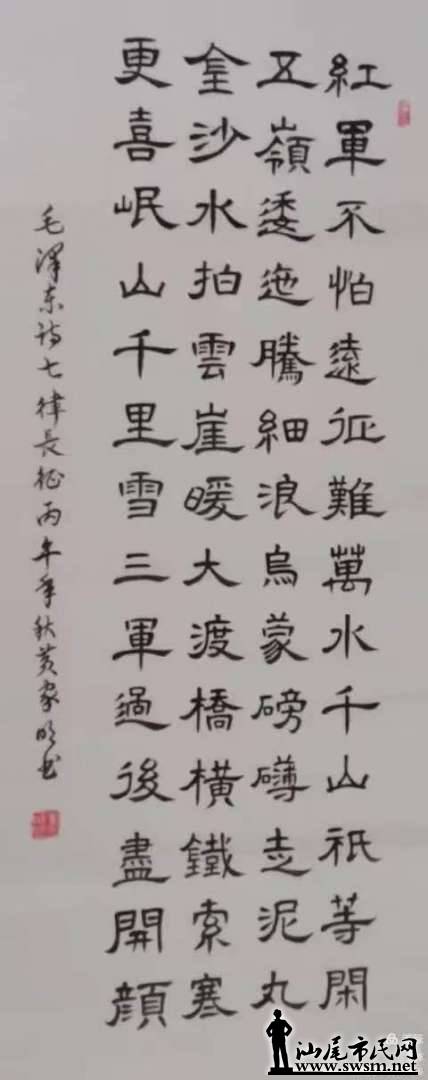 紅軍不怕遠征難萬水千山祇等閑
五嶺逶迤騰細浪烏蒙磅礴走泥丸
金沙水拍雲崖暖大渡橋橫鐵索寒
更喜岷山千里雪三軍過後盡開顏
毛澤东诗七律長征丙午年秋黄家明书
汕尾市民网
www.swsm.net